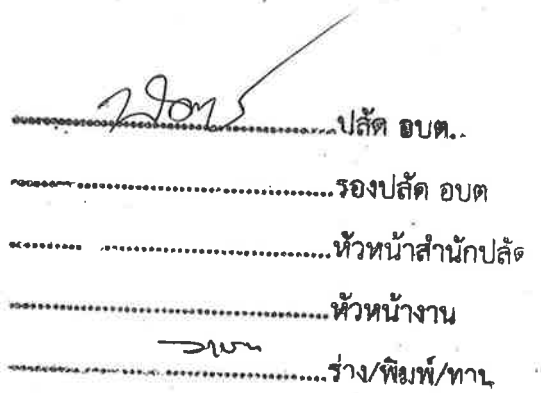 ....................ปลัด อบต..
....................รองปลัด อบต
....................หัวหน้าสำนักปลัด
....................หัวหน้างาน
....................ร่าง/พิมพ์/ทาน